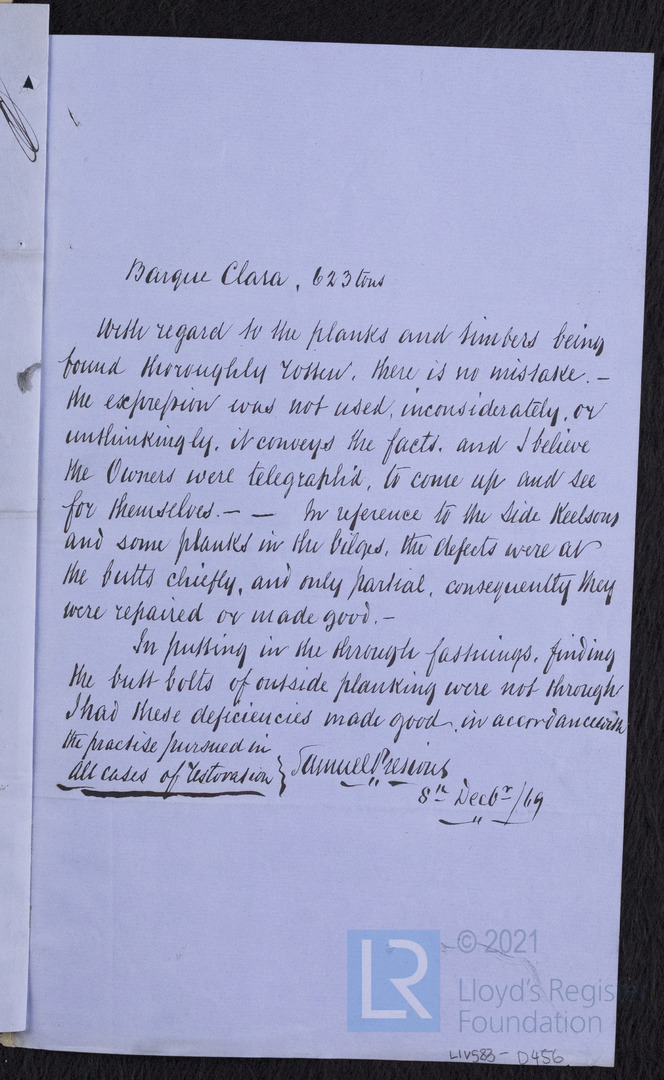 Barque Clara, 623 tons
With regard to the planks and timbers being
found thoroughly rotten, there is no mistake. –
the expression was not used, inconsiderately, or
unthinkingly, it conveys the facts, and I believe
the Owners were telegraph'd, to come up and see
for themselves. – – In reference to the Side Keelsons
and some planks in the bilges, the defects were at
the butts chiefly, and only partial, consequently they
were repaired or made good. –
In putting in the through fastnings, finding
the butt bolts of outside planking were not through
I had these deficiencies made good, in accordance with
the practise pursued in
all cases of restoration } Samuel
8th Decbr/69
LR © 2021
Lloyd's Register
Foundation
LIV583-D456